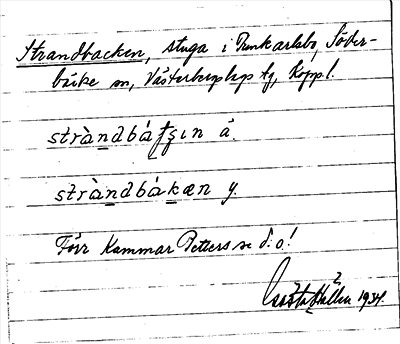 Strandbacken, stuga i Munkarlsbo, Söder-
bärke sn, Västerbergslags tg, Koppl.
stràndbátʂın ä.
stràndbákæn y.
Förr Kammar Petters se d.o!
1934.